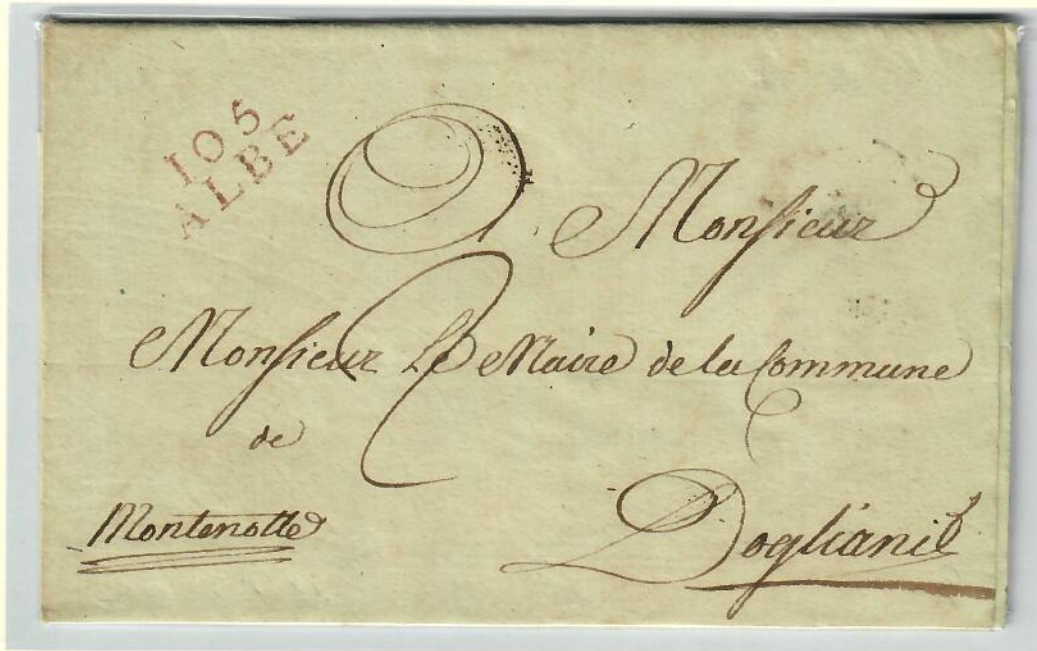 105
ALBE
A Monsieur
Monsieur Le Maire de la Commune
de
Montenotte
Dogliani